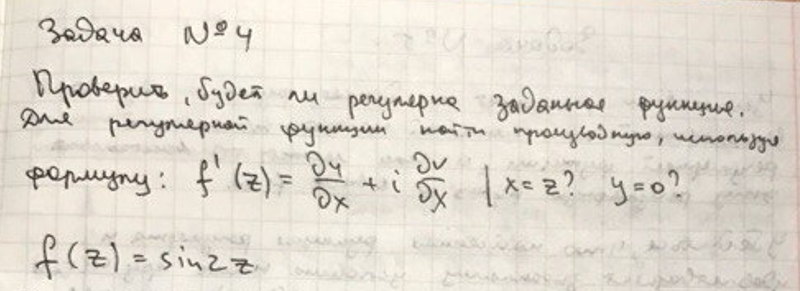 Задача №4
Проверить, будет ли регулярна заданная функция.
Для регулярной функции найти производную, используя
формулу: f'(z) = ∂u/∂x + i ∂v/∂x | x=z? y=0?
f(z) = sin2z